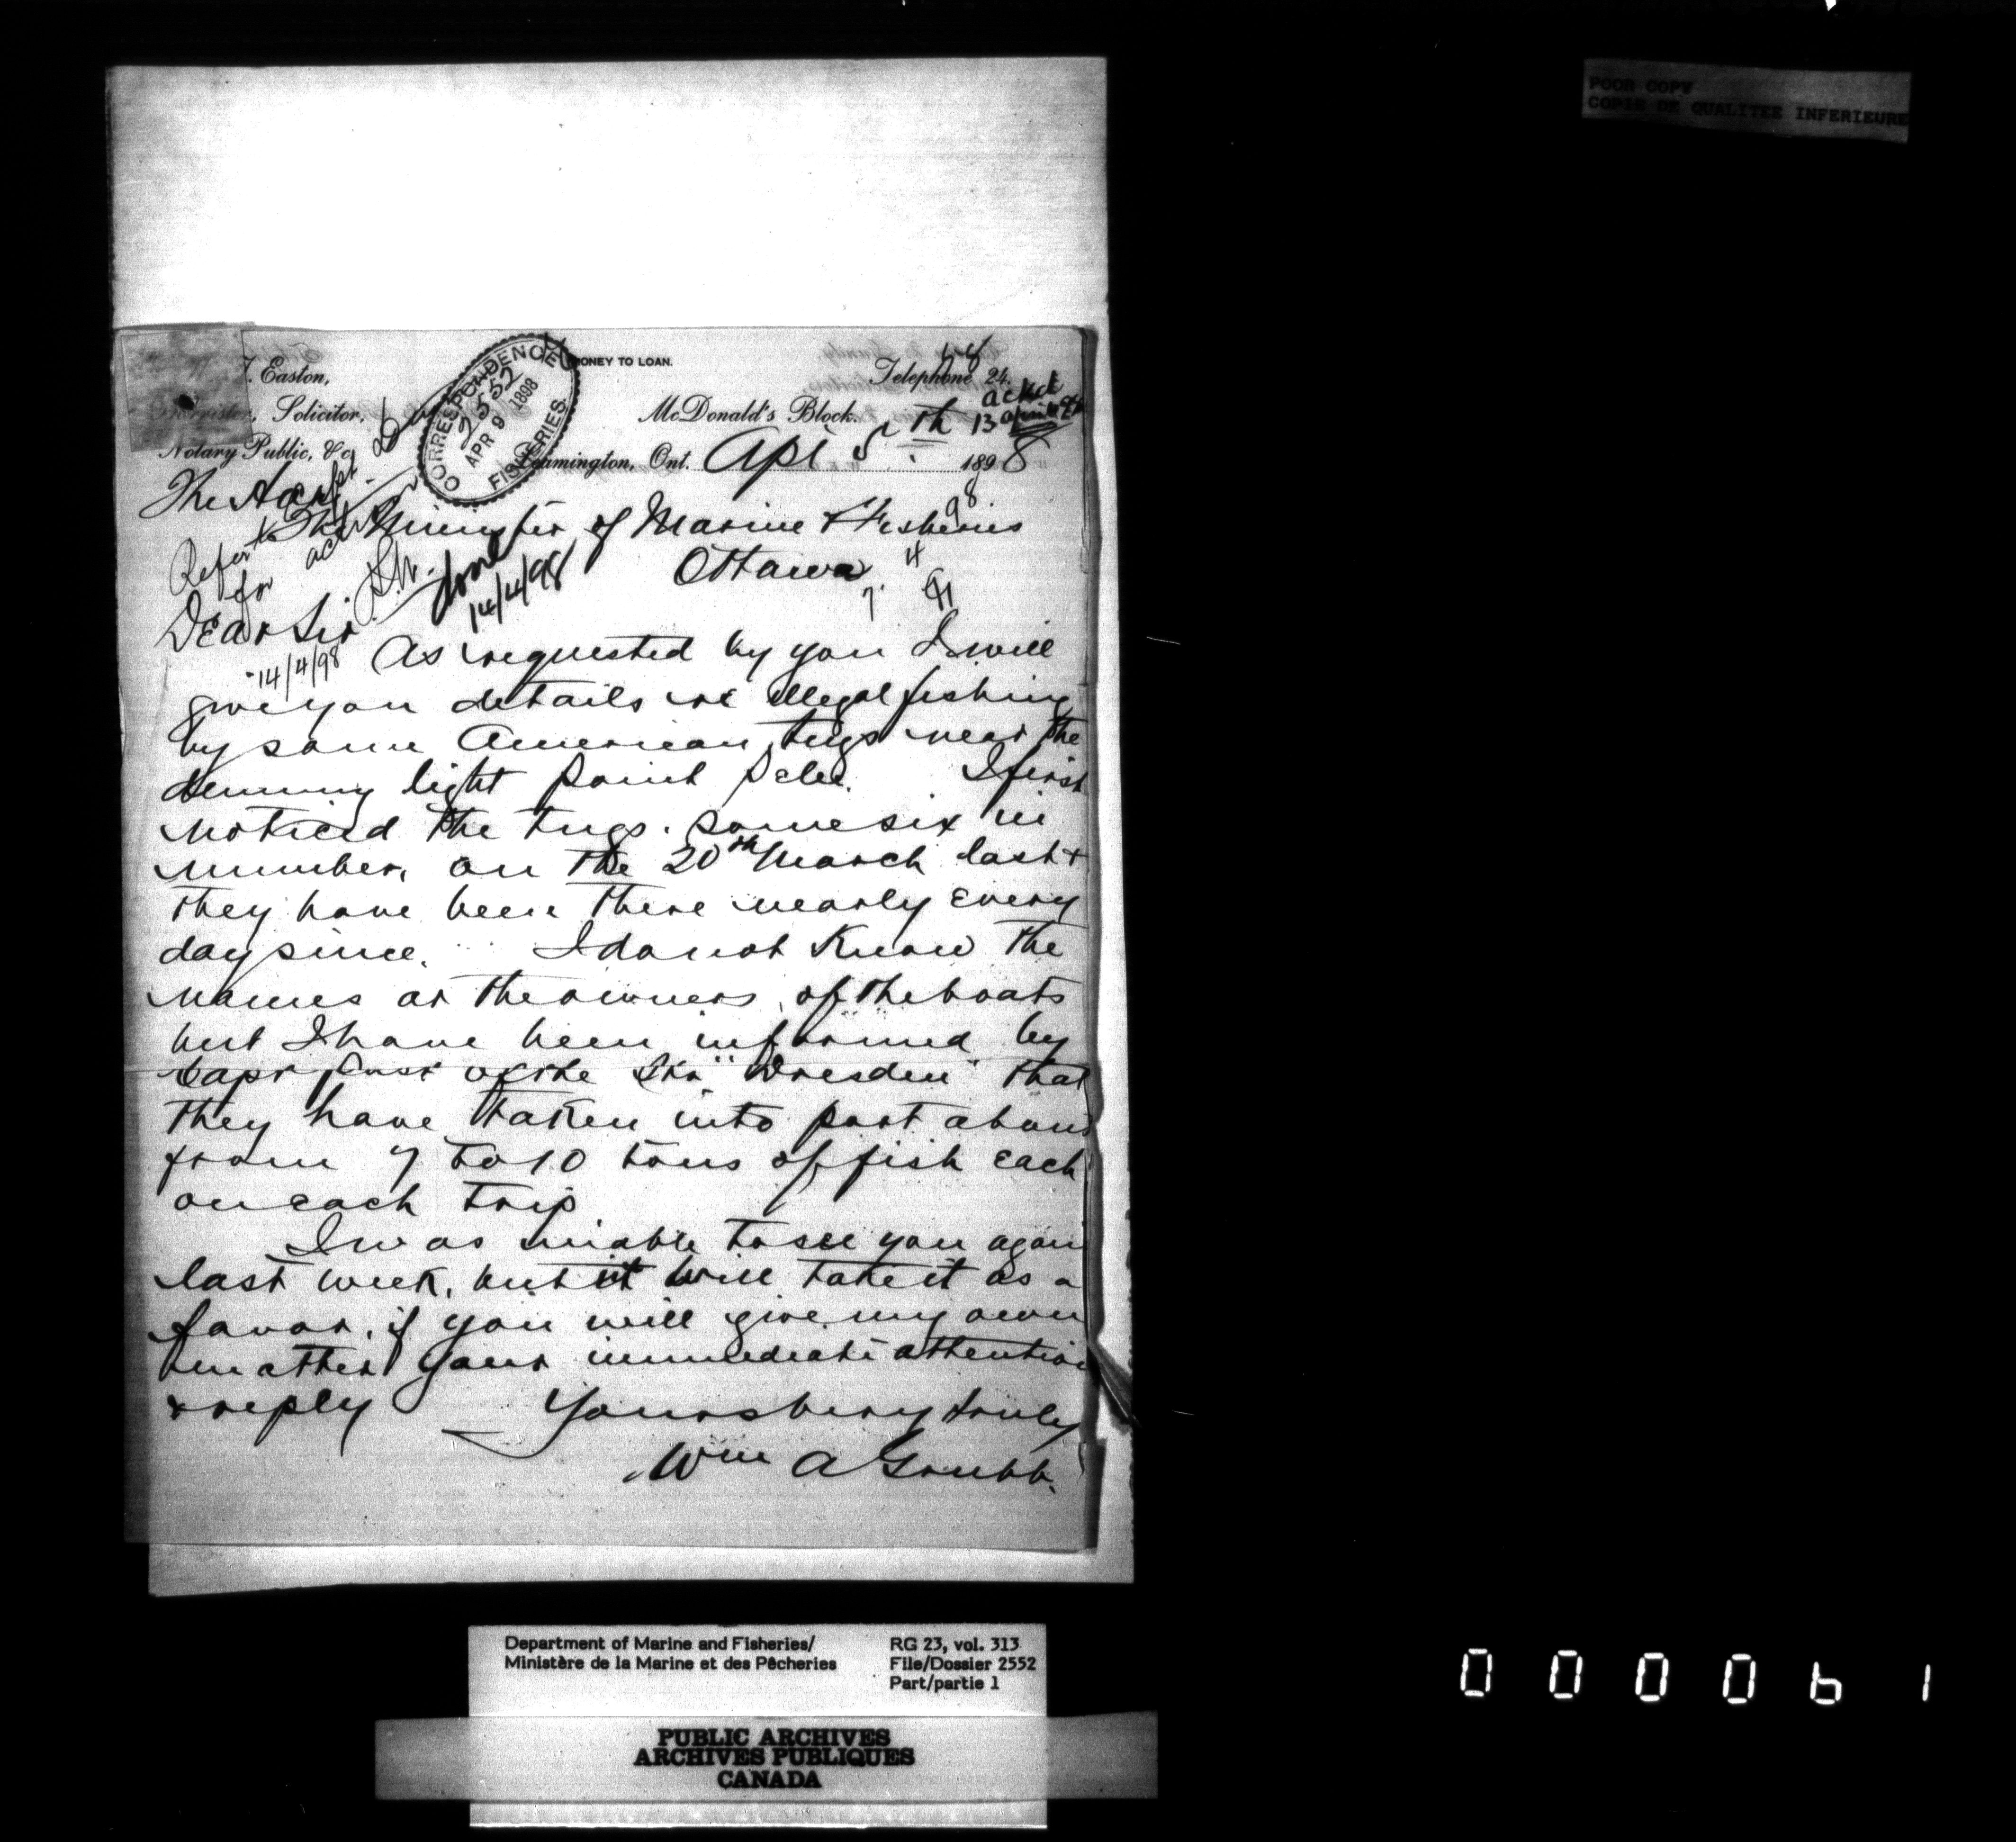 POOR COPY
COPIE DE QUALITEE INFERIEURE
MONEY TO LOAN.
T. Easton,
Telephone 24.
ackd
Barrister, Solicitor,
McDonald's Block.
13 april 98
Notary Public, &c
CORRESPONDENCE
2552
APR 9 1898
FISHERIES
Leamington, Ont. Apl 5th 1898
The Hon
The Minister of Marine & Fisheries
98
Ottawa
Refer to
for action
done
14/4/98
Dear Sir
14/4/98
As requested by you I will
give you details re illegal fishing
by some American tugs near the
dummy light Point Pelee. I first
noticed the tugs. some six in
number, on the 20th March last &
they have been there nearly every
day since. I do not Know the
names or the owners, of the boats
but I have been informed by
Capt of the Str "Dresden" that
they have taken into port abou
from 7 to 10 tons of fish each
on each trip
I was unable to see you again
last week, but it will take it as a
favor, if you will give my own
matter your immediate attention
& reply Yours very truly
Wm A Grubb.
Department of Marine and Fisheries/
Ministère de la Marine et des Pêcheries
RG 23, vol. 313
File/Dossier 2552
Part/partie 1
PUBLIC ARCHIVES
ARCHIVES PUBLIQUES
CANADA
000061